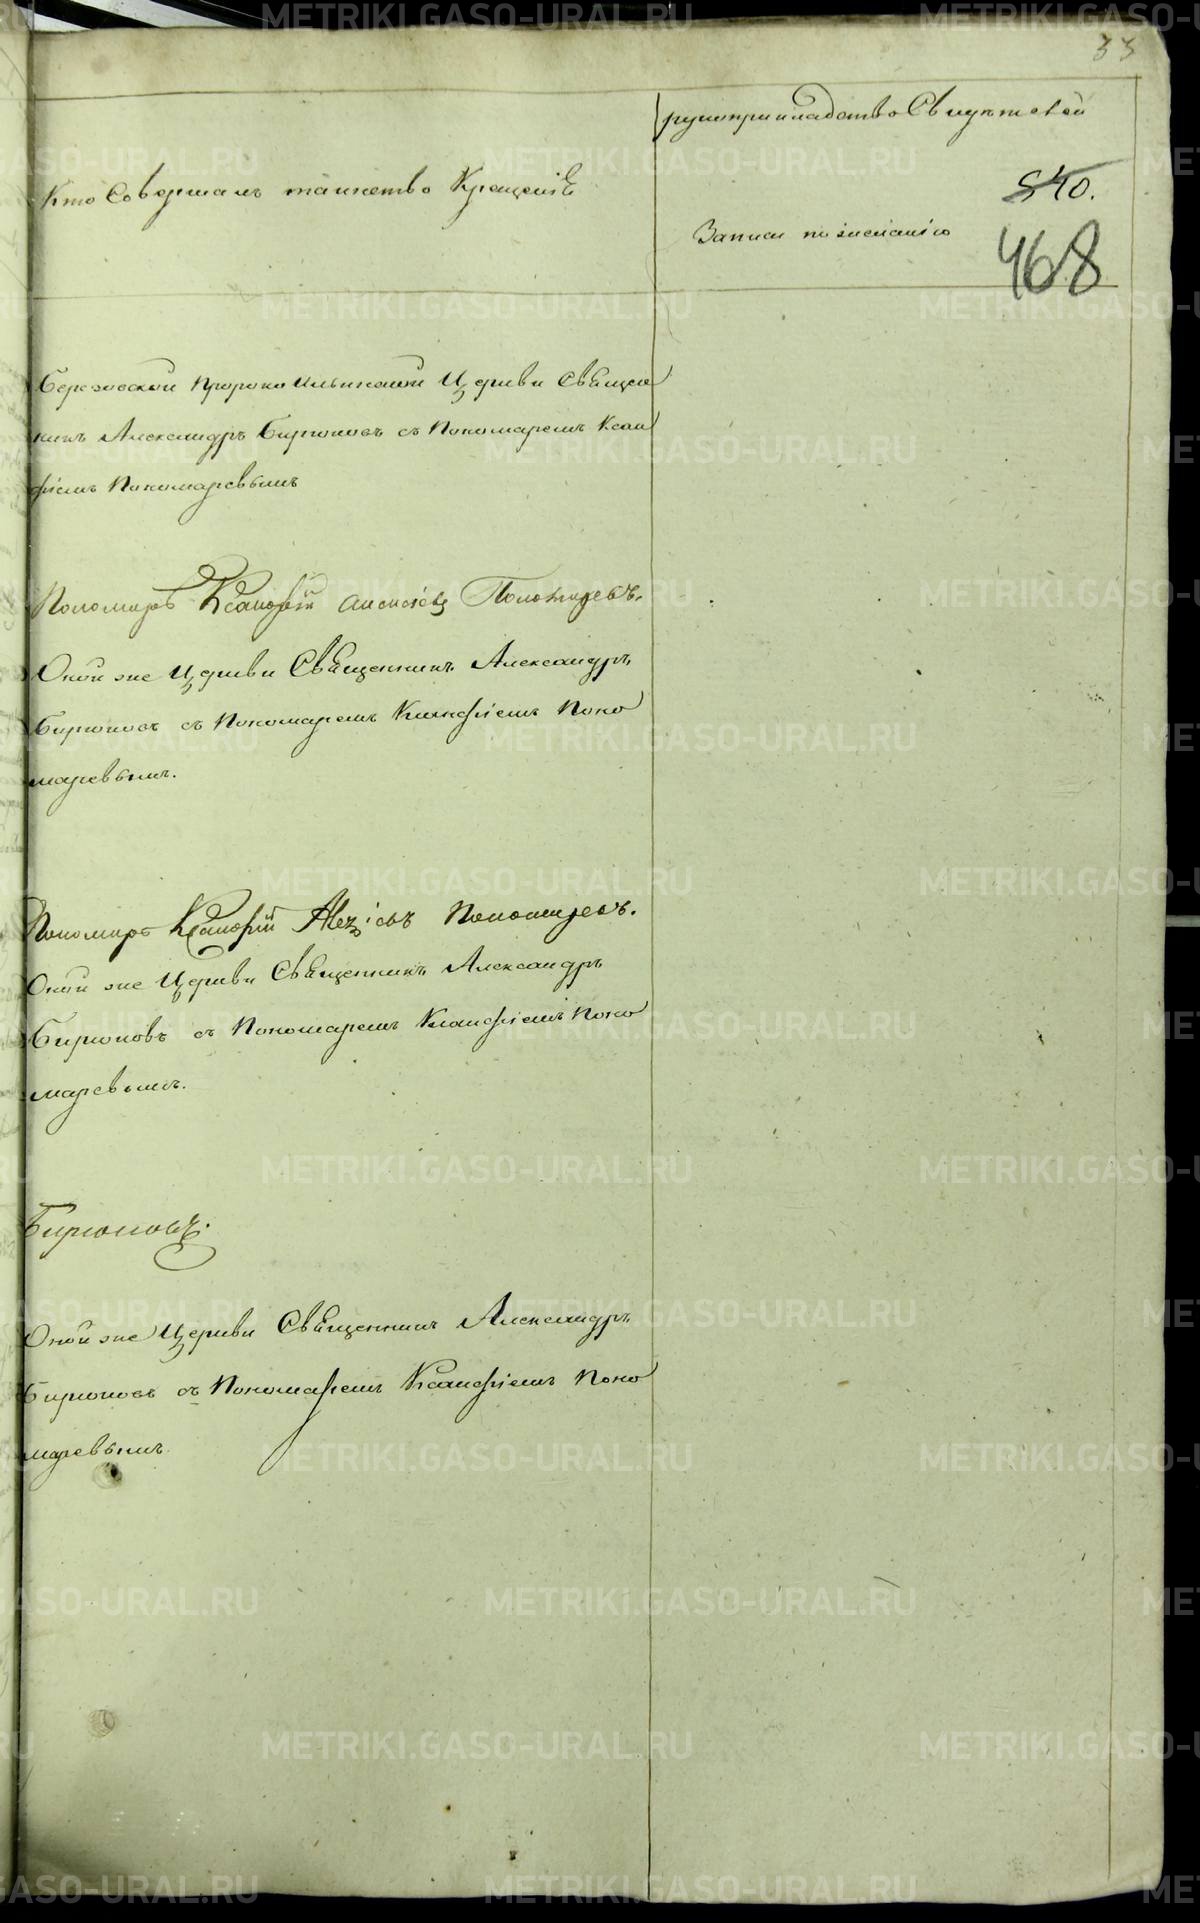 33
Кто Совершалъ таинство Крещенія
рукоприкладство Свидѣтелей
Записи по желанію
540.
468
Березовской Пророко Ильинской Церкви Священ
никъ Александръ Бирюковъ съ Пономаремъ Ксан
фіемъ Пономаревымъ
Пономарь Ксанфій Алексіевъ Пономаревъ.
Оной же Церкви Священникъ Александръ
Бирюковъ съ Пономаремъ Ксанфіемъ Поно
маревымъ.
Пономарь Ксанфій Пономаревъ.
Оной же Церкви Священникъ Александръ
Бирюковъ съ Пономаремъ Ксанфіемъ Поно
маревымъ.
Бирюковъ.
Оной же Церкви Священникъ Александръ
Бирюковъ съ Пономаремъ Ксанфіемъ Поно
маревымъ
METRIKI.GASO-URAL.RU